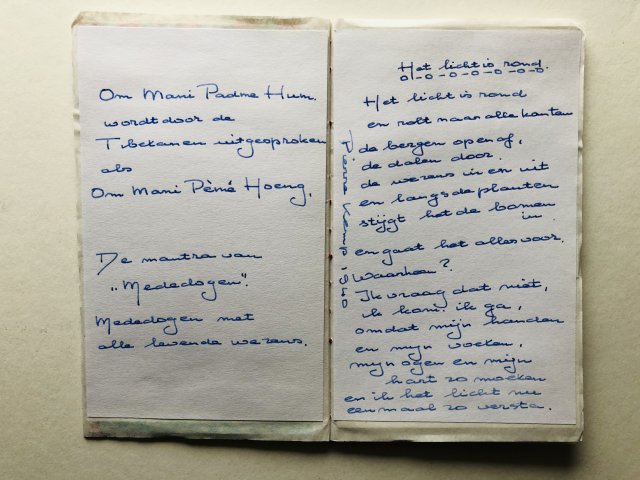 Om Mani Padme Hum.
wordt door de
Tibetanen uitgesproken
als
Om Mani Pémé Hoeng.
De mantra van
„Mededogen".
Mededogen met
alle levende wezens.
Het licht is rond.
Het licht is rond
en rolt naar alle kanten
de bergen op en af,
de dalen door.
de wezens in en uit
en langs de planten
stijgt het de bomen
in
en gaat het alles voor.
Waarheen?
Ik vraag dat niet,
ik kom. ik ga,
omdat mijn handen
en mijn voeten,
mijn ogen en mijn
hart zo moeten
en ik het licht nu
eenmaal zo versta.
Pierre Kemp 1940